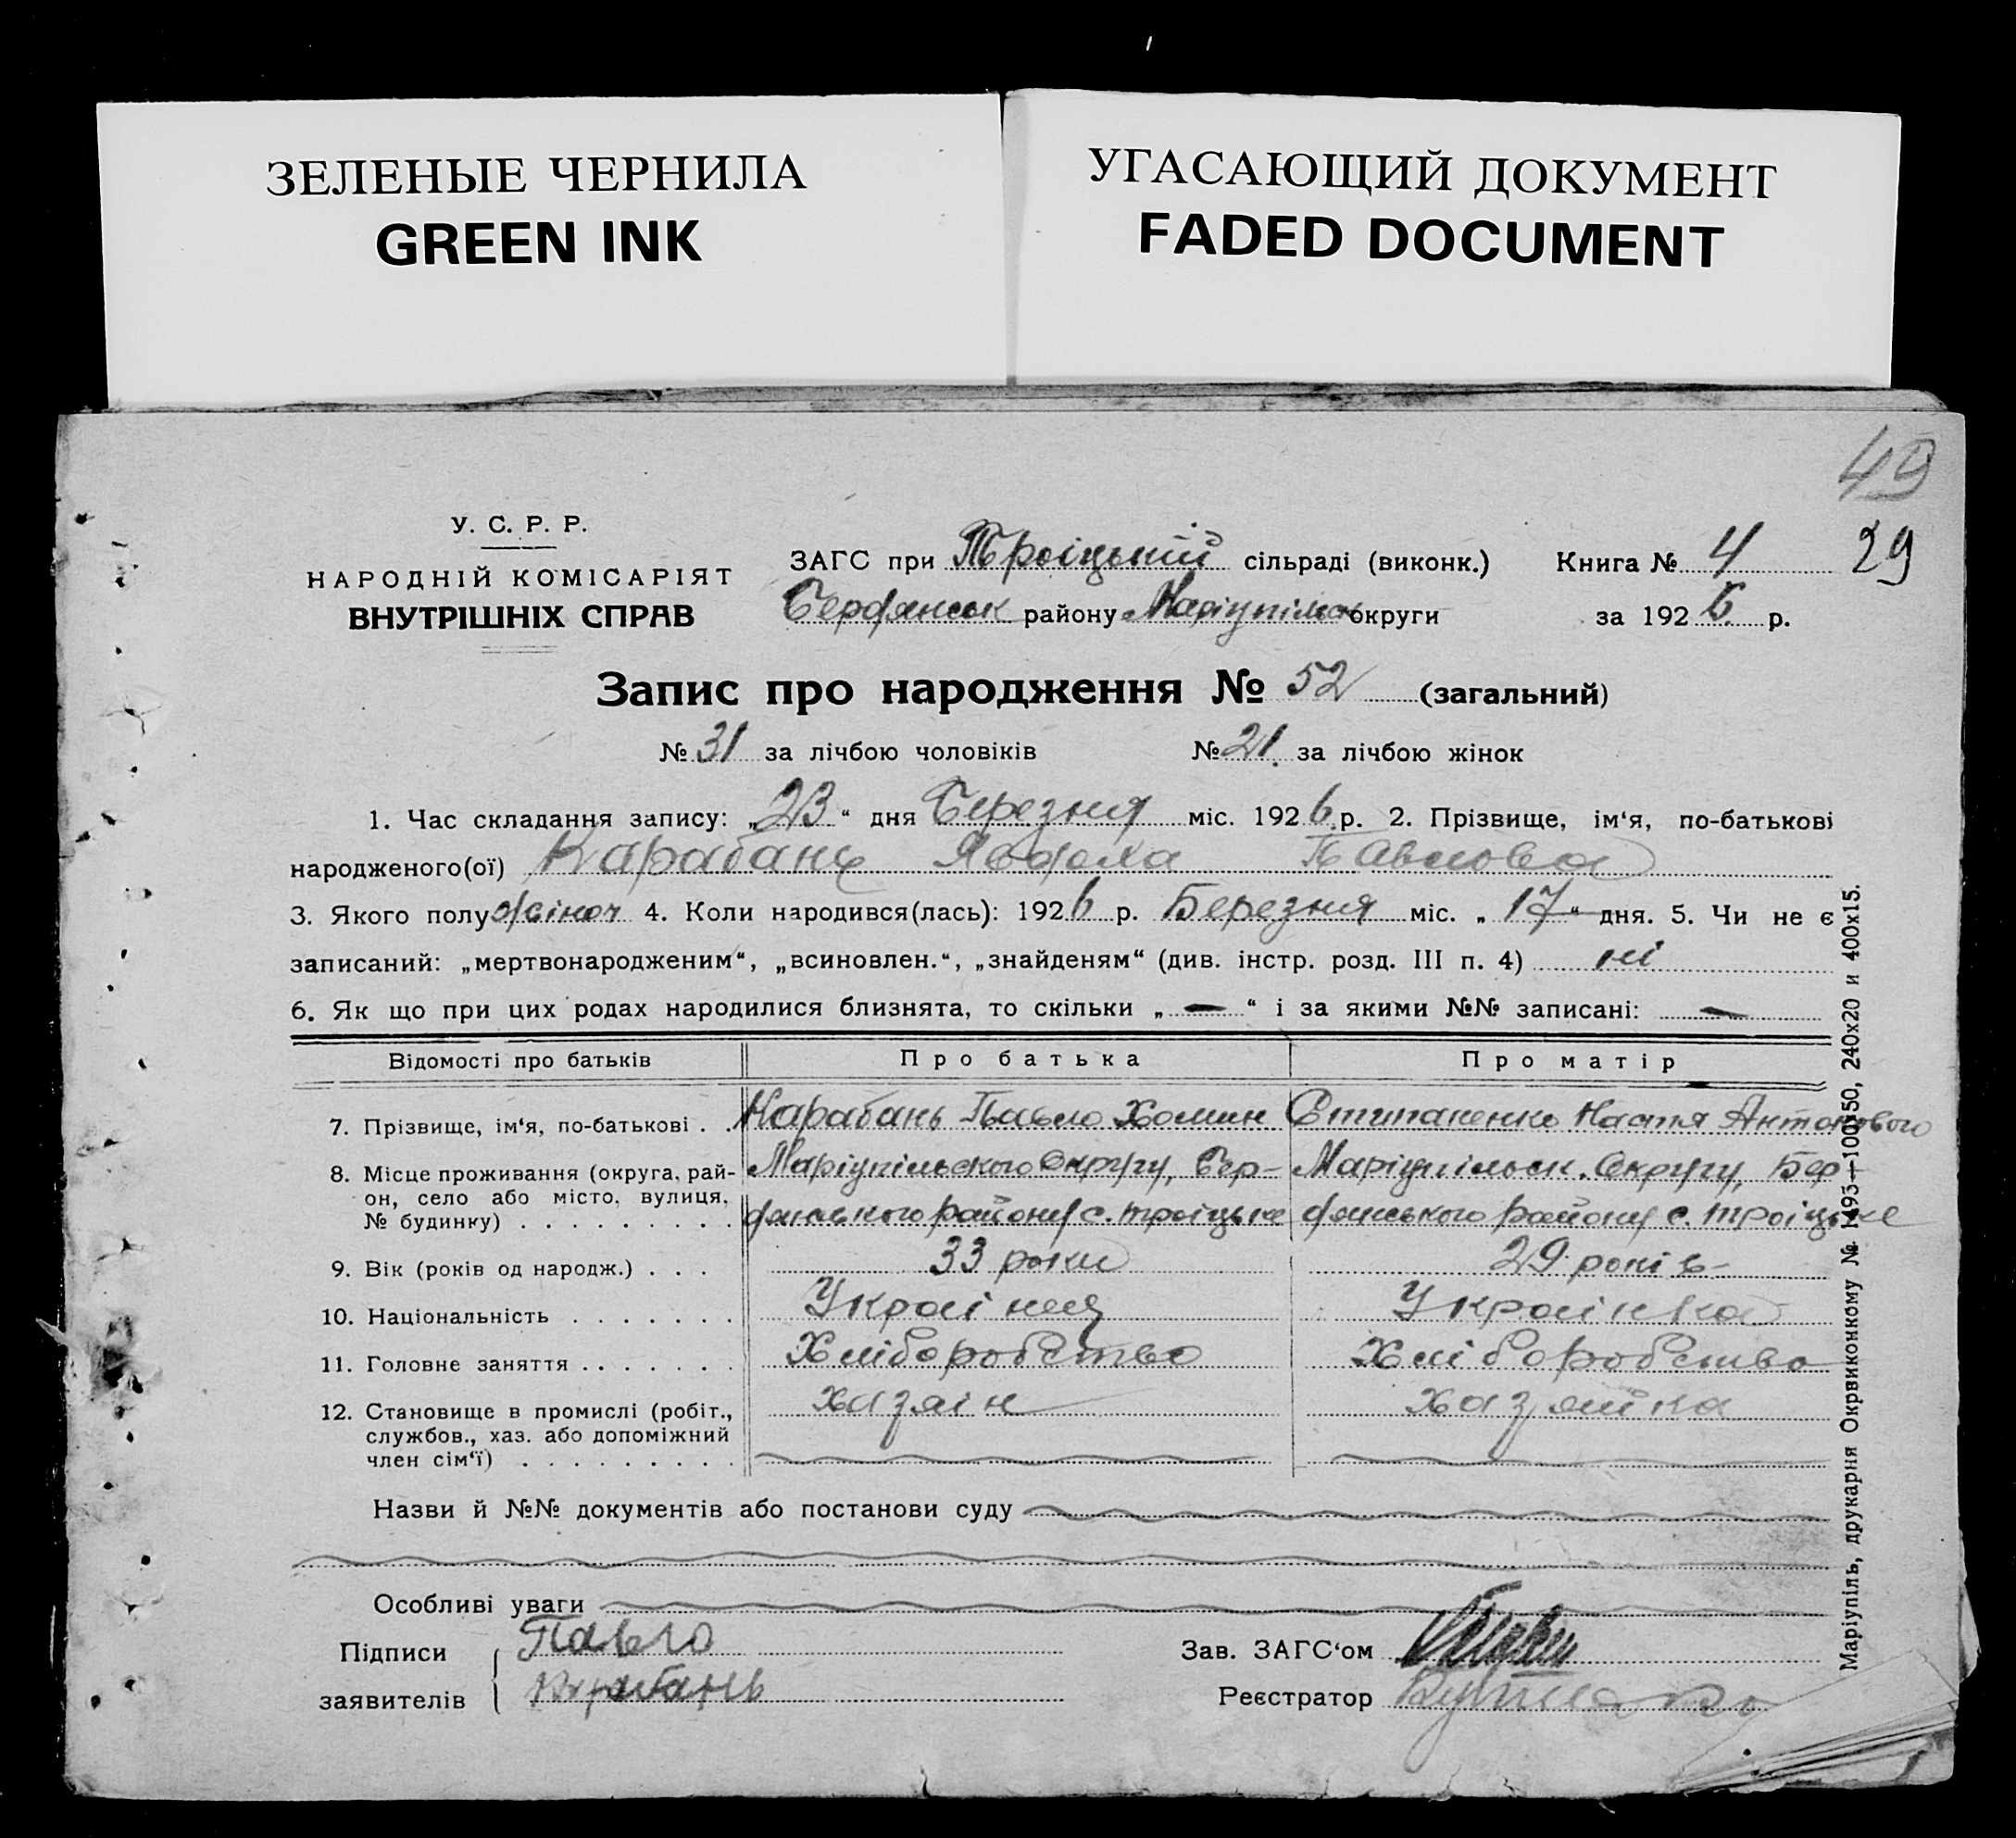 ЗЕЛЕНЫЕ ЧЕРНИЛА
GREEN INK
УГАСАЮЩИЙ ДОКУМЕНТ
FADED DOCUMENT
49
29
У. С. Р. Р.
НАРОДНІЙ КОМІСАРІЯТ
ВНУТРІШНІХ СПРАВ
ЗАГС при Троіцький сільраді (виконк.)
Бердянськ району Маріупільс округи
Книга № 4
за 1926 р.
Запис про народження № 52 (загальний)
№ 31 за лічбою чоловіків № 21 за лічбою жінок
1. Час складання запису: „23“ дня Березня міс. 1926 р. 2. Прізвище, ім‘я, по-батькові
народженого(ої) Карабань Явдоха Павлова
3. Якого полу жіноч 4. Коли народився(лась): 1926 р. Березня міс. „17“ дня. 5. Чи не є
записаний: „мертвонародженим“, „всиновлен.“, „знайденям“ (див. інстр. розд. III п. 4) ні
6. Як що при цих родах народилися близнята, то скільки „—“ і за якими №№ записані: —
Відомості про батьків Про батька Про матір
7. Прізвище, ім‘я, по-батькові . . Карабань Павло Хомин Настя Антонового
8. Місце проживання (округа, рай- Маріупільського Округу, Бер- Маріупільськ. Округу, Бер-
он, село або місто, вулиця,
№ будинку) . . . . . . . . . дянського району с. Троіцьке дянського району с. Троіцьке
9. Вік (років од народж.) . . . 33 роки 29 років
10. Національність . . . . . . . Украінец Украінка
11. Головне заняття . . . . . . . Хліборобство Хліборобство
12. Становище в промислі (робіт., хазяін хазяйка
службов., хаз. або допоміжний
член сім‘ї) . . . . . . . . .
Назви й №№ документів або постанови суду
Особливі уваги
Підписи Павло
заявителів Карабань
Зав. ЗАГС‘ом
Реєстратор
Маріупіль, друкарня Окрвиконкому № 1493—100х50, 240х20 и 400х15.